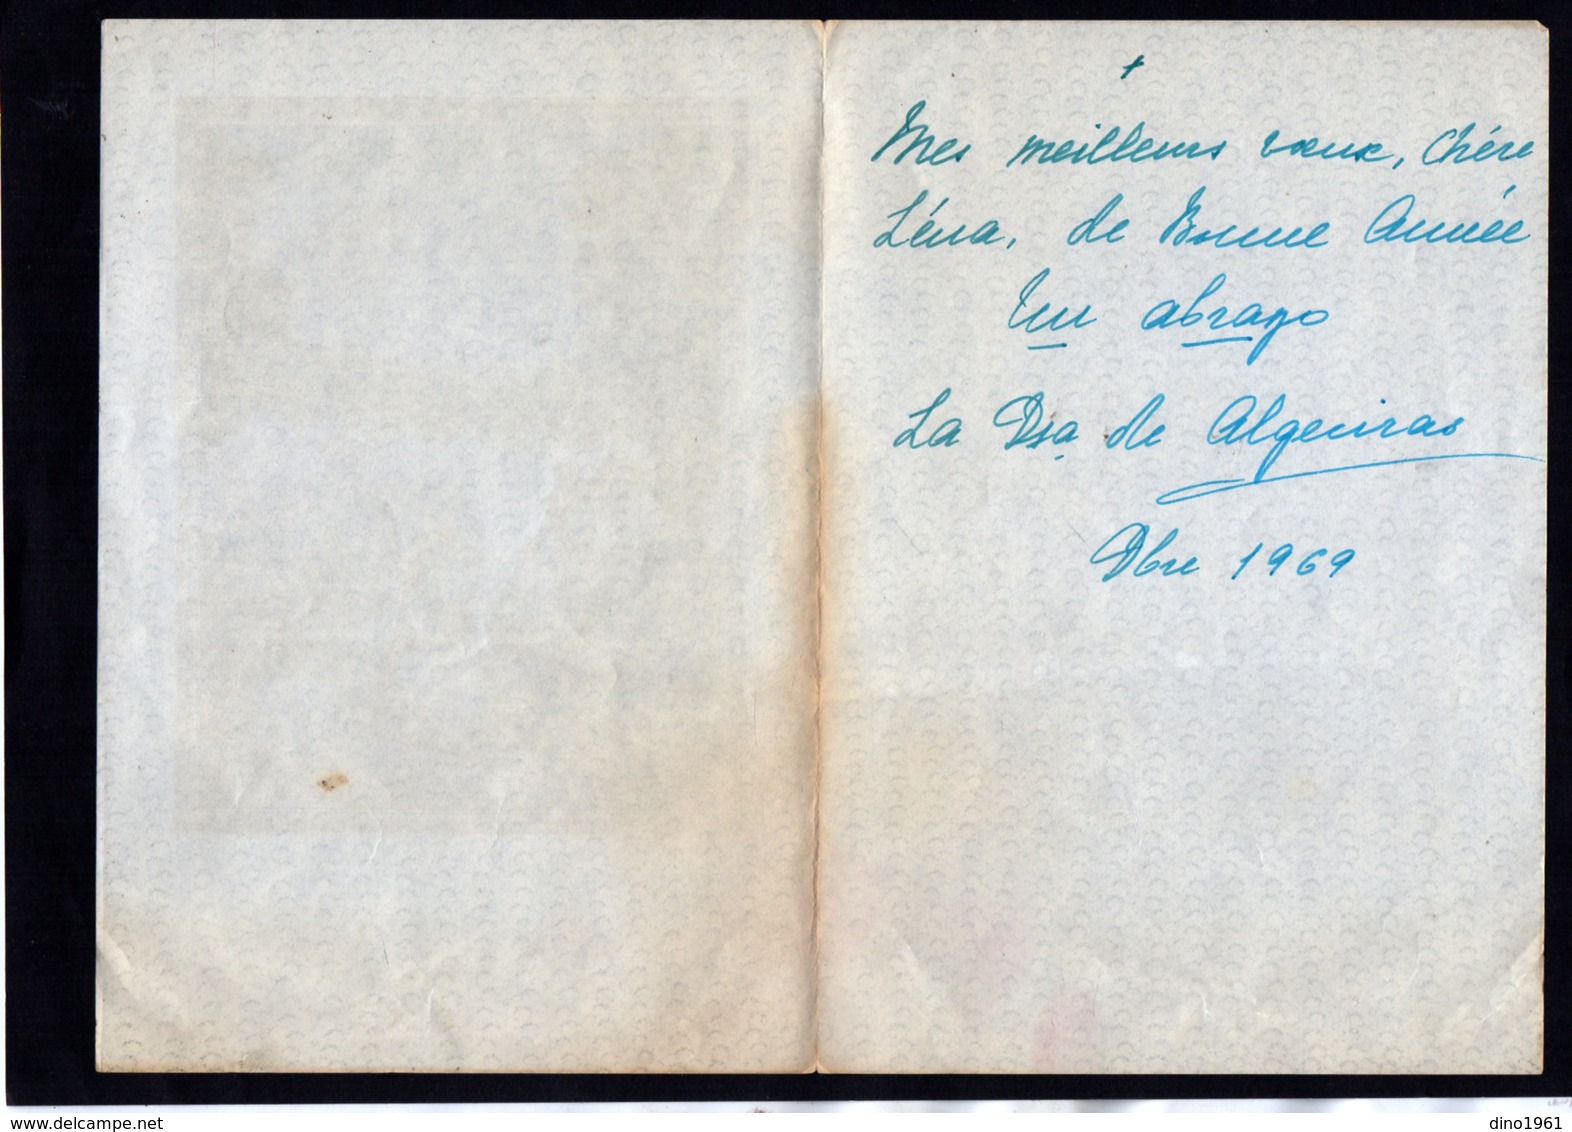 +
Mes meilleurs vœux, Chère
Léna, de Bonne Année
Un abrazo
La Dsa de Algeciras
Dbre 1969
delcampe.net
dino1961